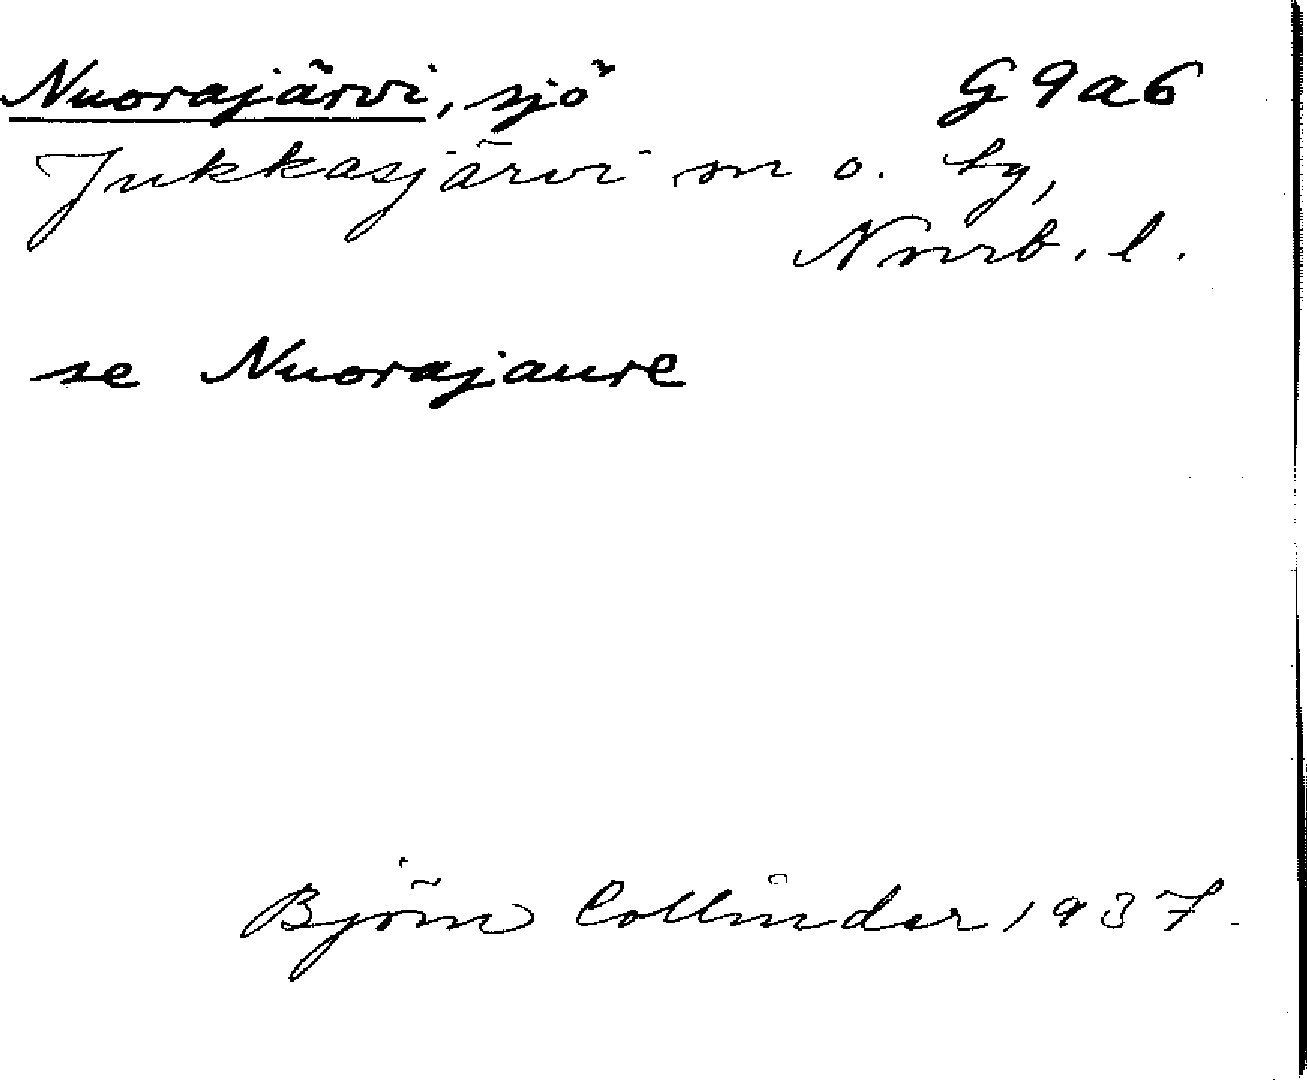 Nuorajärvi, sjö G 9 a 6
Jukkasjärvi sn o. tg,
Norrb. l.
se Nuorajaure
Björn Collinder 1937.